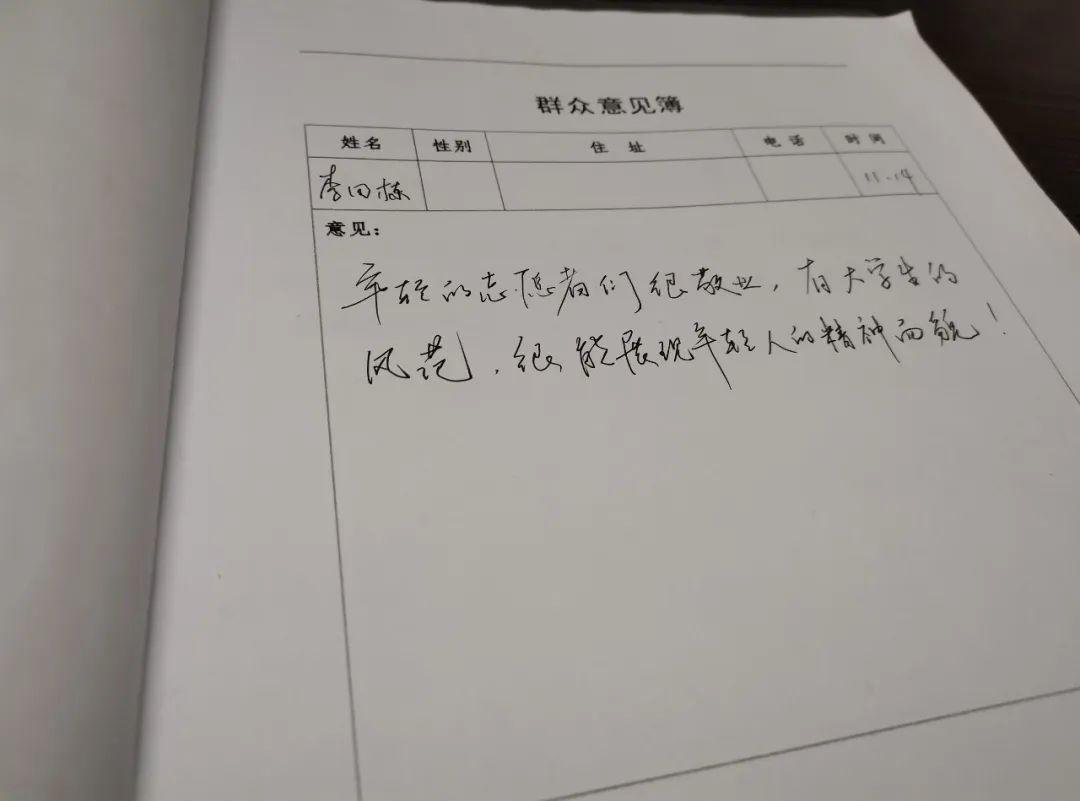 群众意见簿
姓名 性别 住址 电话 时间
李 栋 11.14
意见：
年轻的志愿者们很敬业，有大学生的
风范，很能展现年轻人的精神面貌！